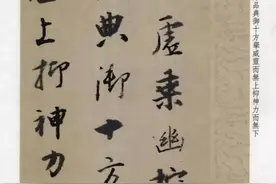 品典御十方舉威靈而無上抑神力而無下
虛乘幽控
典御十方
上抑神力